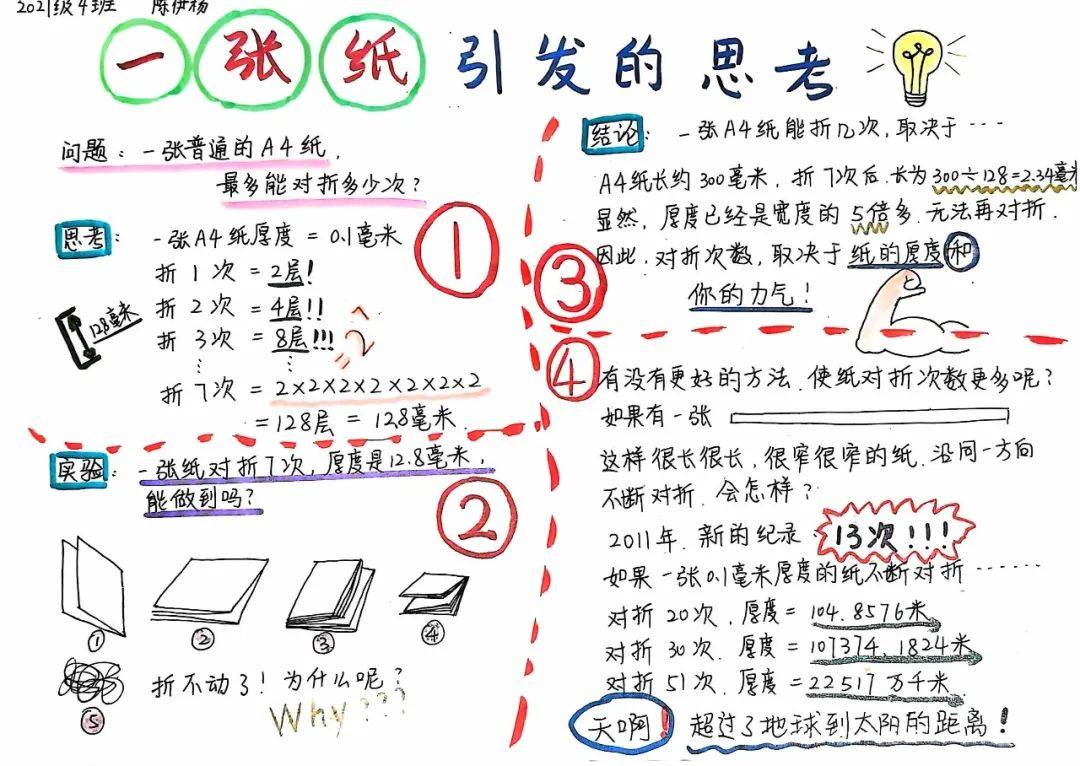 2021级4班 陈伊杨
一张纸引发的思考
问题：一张普通的A4纸，
最多能对折多少次？
思考：一张A4纸厚度 = 0.1毫米
①
折1次 = 2层!
折2次 = 4层!!
128毫米
折3次 = 8层!!!
⋮ ⋮
=2⁷
折7次 = 2×2×2×2×2×2×2
=128层 = 128毫米
实验：一张纸对折7次，厚度是12.8毫米，
能做到吗？
②
① ② ③ ④
⑤
折不动了！为什么呢？
Why???
结论：一张A4纸能折几次，取决于……
A4纸长约300毫米，折7次后.长为300÷128=2.34毫米
显然，厚度已经是宽度的5倍多.无法再对折.
③
因此.对折次数，取决于纸的厚度和
你的力气！
④
有没有更好的方法.使纸对折次数更多呢？
如果有一张
这样很长很长，很窄很窄的纸.沿同一方向
不断对折.会怎样？
2011年.新的纪录：13次!!!
如果一张0.1毫米厚度的纸不断对折……
对折20次.厚度=104.8576米
对折30次.厚度=107374.1824米
对折51次.厚度=22517万千米
天啊！超过了地球到太阳的距离！